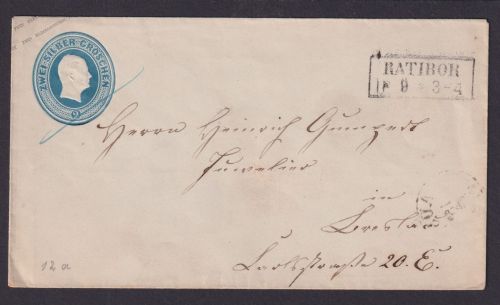 ZWEI SILBER GROSCHEN
2
RATIBOR
9 3-4
Herrn Heinrich Gumpert
Juwelier
in
Breslau
Carlsstraße 20. E.
12 a